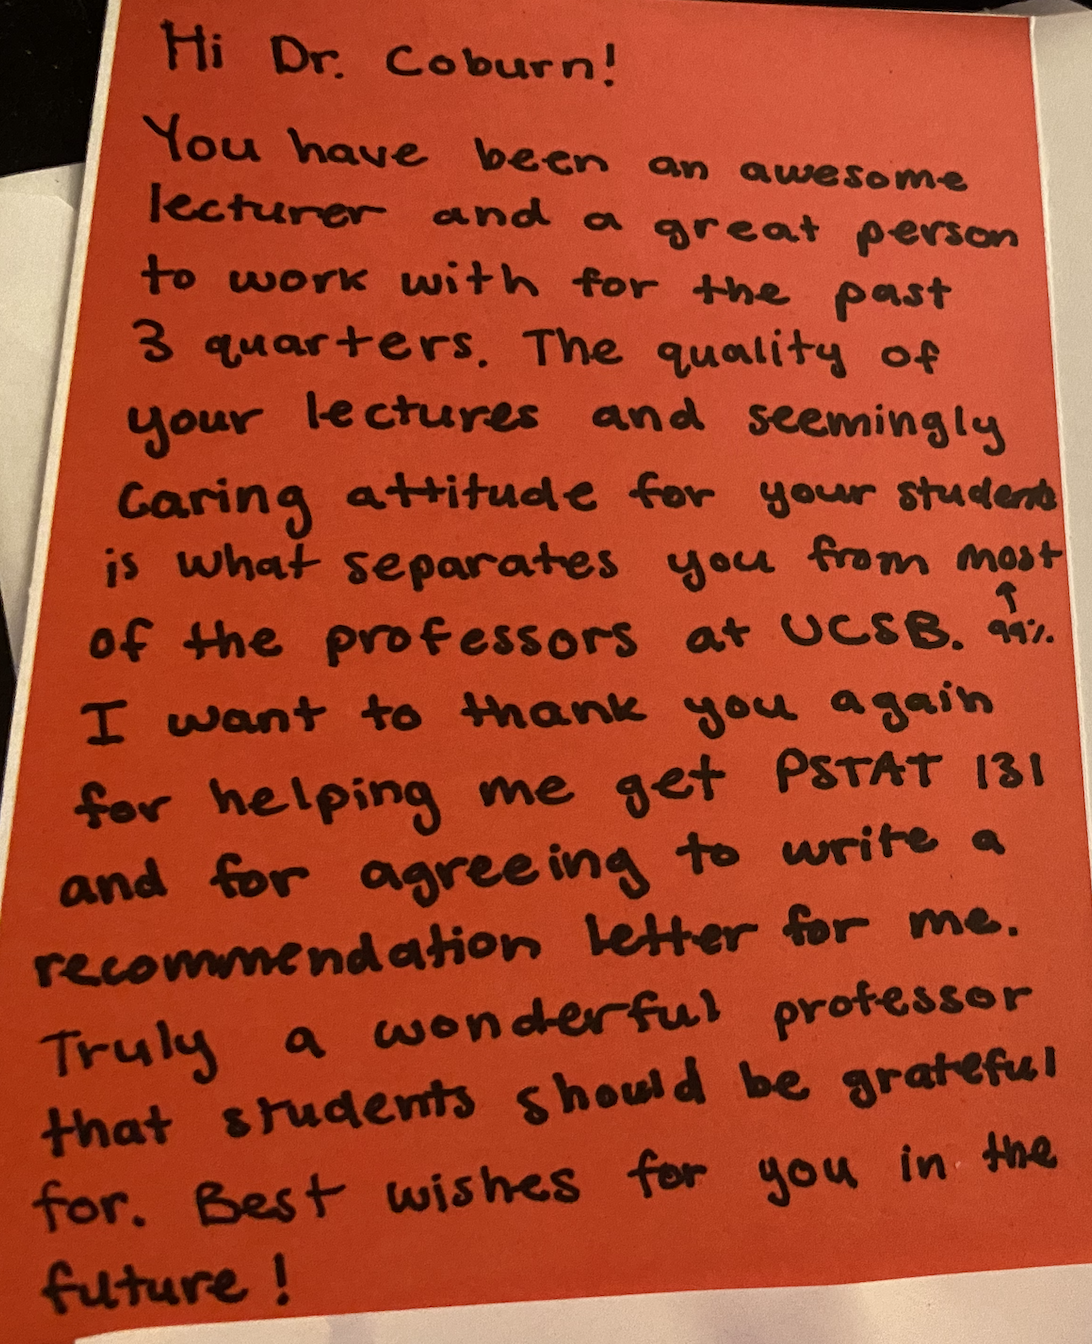 Hi Dr. Coburn!
You have been an awesome
lecturer and a great person
to work with for the past
3 quarters. The quality of
your lectures and seemingly
caring attitude for your students
is what separates you from most
↑
of the professors at UCSB. 99%.
I want to thank you again
for helping me get PSTAT 131
and for agreeing to write a
recommendation letter for me.
Truly a wonderful professor
that students should be grateful
for. Best wishes for you in the
future!